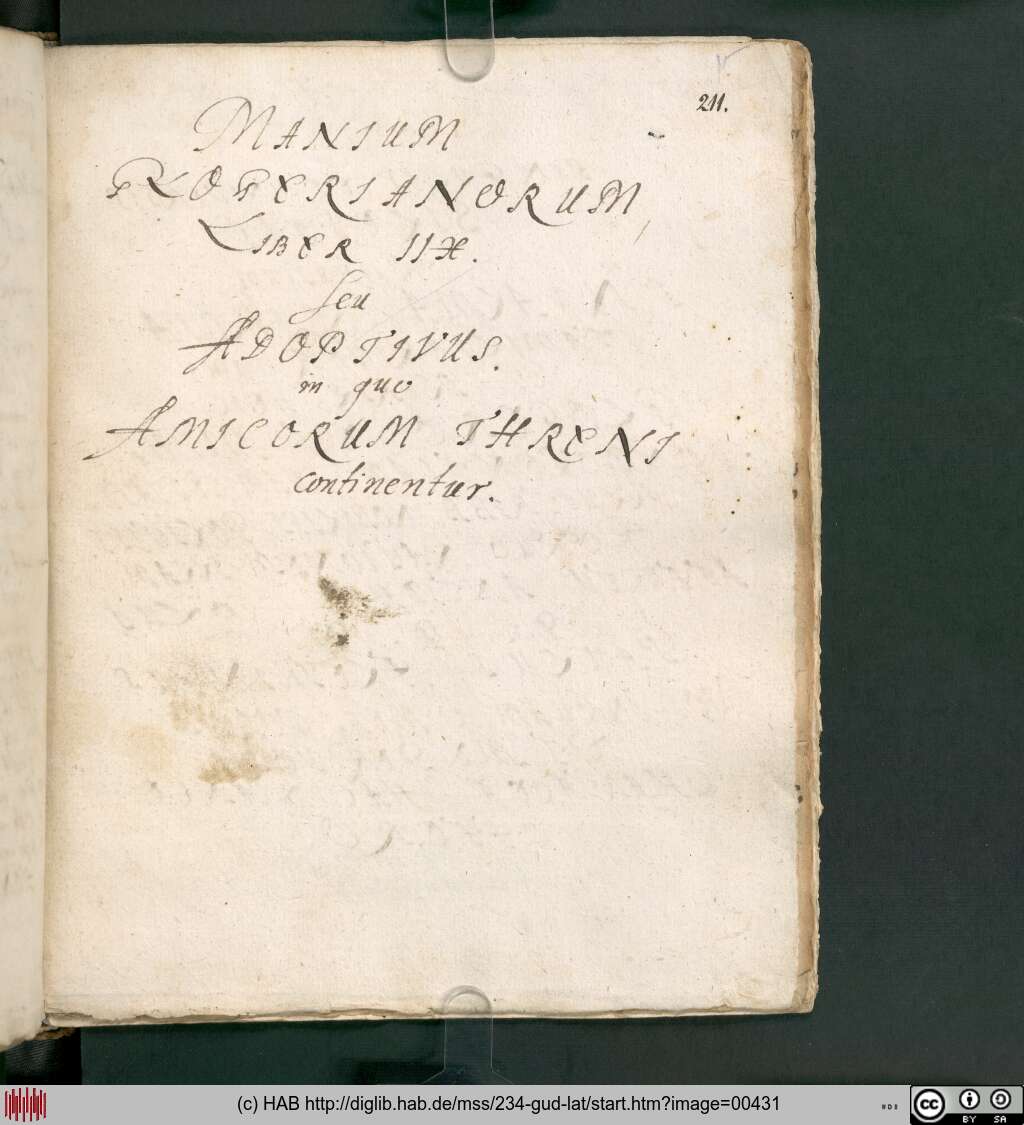 211.
MANIUM
GLOGERIANORUM,
LIBER IIX.
seu
ADOPTIVUS.
in quo
AMICORUM THRENI
continentur.
(c) HAB http://diglib.hab.de/mss/234-gud-lat/start.htm?image=00431
cc BY SA